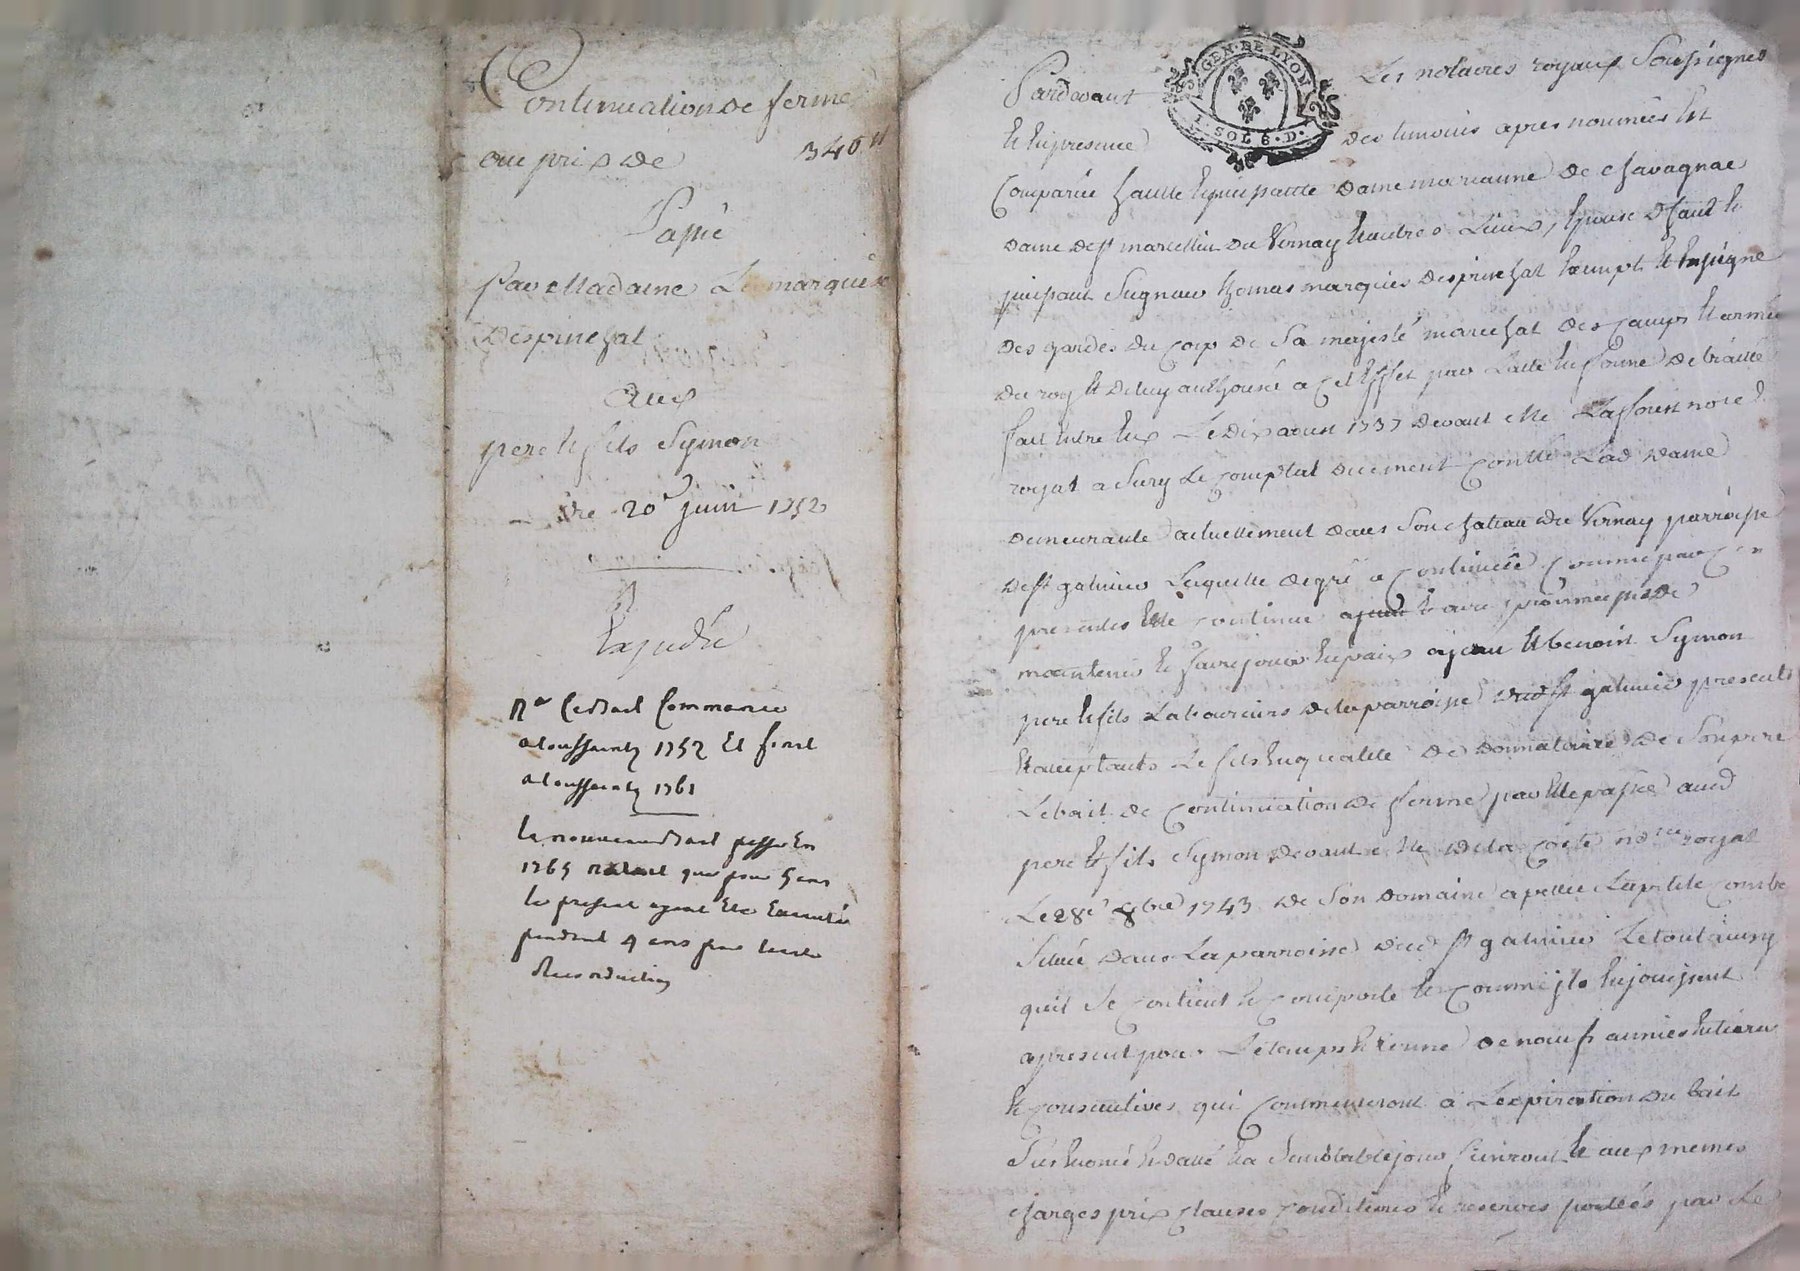 Continuation de ferme
au prix de 340 ᴸᴸ
Passé
par Madame La marquise
Despinchal
Aux
pere et fils Symon
Du 20e juin 1752
Expedié
Na Ce Bail Commance
a toussaintz 1752 Et finit
a toussaintz 1761
le nouveau Bail passé En
1765 que pour 5 ans
le present ayant Ete Executé
pendant 4 ans par tacite
Reconduction
GEN · DE LYON
1 · SOL 6 · D ·
Pardevant Les notaires royaux Soussignes
et en presence des temoins apres nommés est
Comparüe haulte et puissante dame marianne de chavagnac
dame de st marcellin du Vernay et autres Lieux, Epouse d'haut et
puissant Seigneur thomas marquis despinchal Exempt et Enseigne
des gardes du Corp de Sa majesté marechal des Camps et armée
du roy et de luy authorisé a Cet Effet par Lacte en forme de traitté
fait entre Eux Le dix aoust 1737 devant Me note
royal a Sury Le Comptal duement Contlé Lad dame
demeurante actuellement dans Son chateau du Vernay parroisse
de st galmier Laquelle de gré a Continüé Comme par Ces
presentes Elle Continue et avec promesse de
maintenir et faire jouir en paix a jean et benoist Symon
pere et fils Laboureurs de la parroisse dud st galmier presents
et acceptants Le fils en qualité de donnataire de Son pere
Le bail de Continuation de ferme par Elle passé aud
pere et fils Symon devant Me De la Coste nore royal
Le 28e 8bre 1743 de Son domaine apellé La petite Combe
Situé dans La parroisse dud st galmier Le tout ainsy
quil Se Contient et Comporte et Comme ils en jouissent
apresent pour Le temps et terme de noeuf années entieres
et Consecutives qui Commenceront a Lexpiration du bail
Sus Enoncé et datté Et a Semblable jour finiront et aux memes
charges prix clauses Conditions et reserves portés par Le